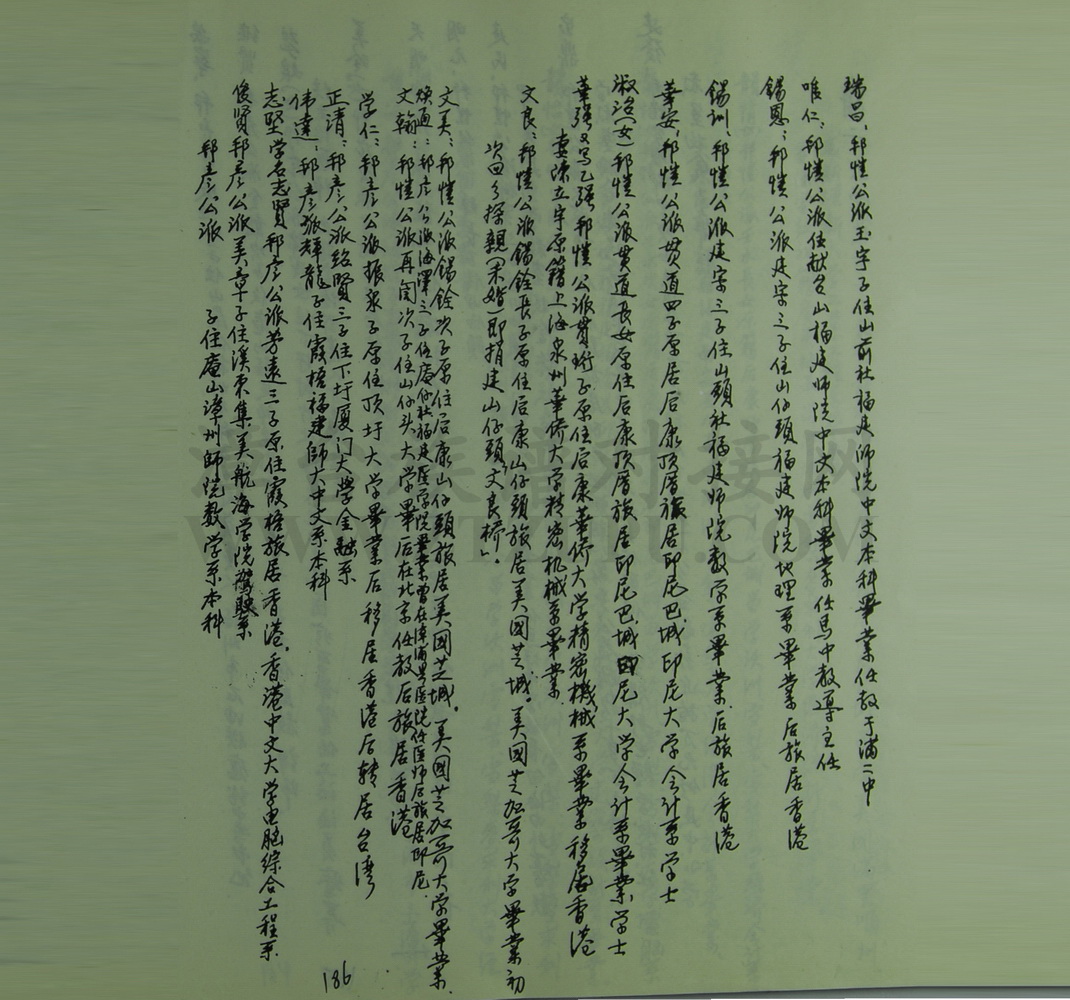 瑞昌：邦憻公派玉字子住山前社福建師院中文本科畢業任教于浦二中
唯仁：邦憻公派住献台山福建师院中文本科畢業任馬中教導主任
錫恩：邦憻公派建宗三子住山仔頭福建师院地理系畢業后旅居香港
錫訓：邦憻公派建宗三子住山頭社福建师院数学系畢業后旅居香港
華安：邦憻公派贯道四子原居后康顶厝旅居印尼巴城印尼大学会计系学士
淑治(女)邦憻公派贯道長女原住后康顶厝旅居印尼巴城印尼大学会计系畢業学士
華强又写乙强邦憻公派贯珩子原住后康華侨大学精密機械系畢業移居香港
妻陳立宇原籍上海泉州華侨大学精密机械系畢業
文良：邦憻公派錫銓長子原住后康山仔頭旅居美國芝城。美國芝加哥大学畢業初
次回乡探親(未婚)即捐建山仔頭"文良橋"。
文美：邦憻公派錫銓次子原住后康山仔頭旅居美國芝城。美國芝加哥大学畢業
煥通：邦彦公派海澤三子住庵仔社福建医学院畢業曾在漳浦县医院任医师后旅居印尼
文翰：邦憻公派再囵次子住山仔头大学畢业后在北京任教后旅居香港
学仁：邦彦公派振泉子原住顶圩大学畢業后移居香港后转居台湾
正清：邦彦公派绍賢三子住下圩厦门大學金融系
伟達：邦彦派輝龍子住霞梧福建師大中文系本科
志堅学名志賢邦彦公派芳遠三子原住霞梧旅居香港。香港中文大学电脑綜合工程系
俊賢邦彦公派美章子住溪東集美航海学院駕駛系
邦彦公派 子住庵山漳州師院数学系本科
186